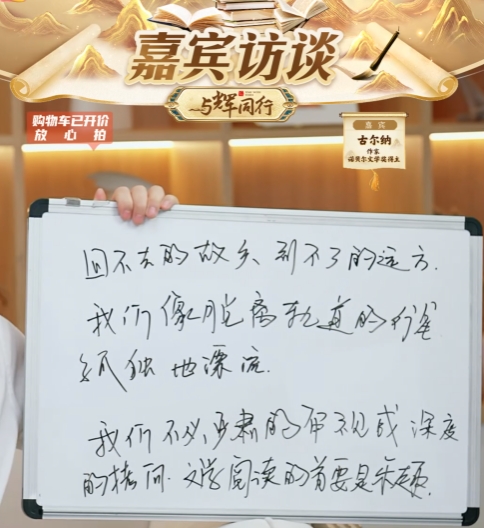 嘉宾访谈
与辉同行
购物车已开价
放心拍
嘉宾
古尔纳
作家
诺贝尔文学奖得主
回不去的故乡、到不了的远方.
我们像脱离轨道的行星
孤独地漂流.
我们不必、严肃的审视或深度
的拷问.文学阅读的首要是乐趣.